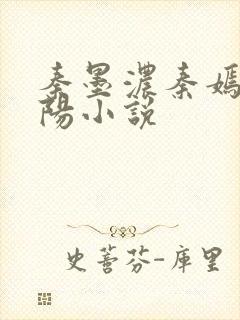 秦墨濃秦嫣
陽小說
史蒼芬-庫里